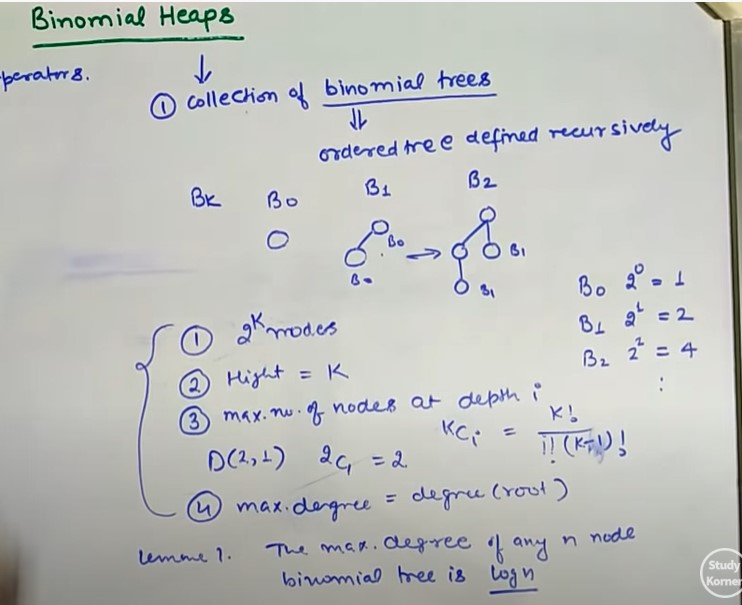 Binomial Heaps
perators.
① collection of binomial trees
ordered tree defined recursively
BK B0 B1 B2
B0
B0
B1
B1
B0 2^0 = 1
B1 2^1 = 2
B2 2^2 = 4
:
① 2^K nodes
② Hight = K
③ max. no. of nodes at depth i
KCi = K! / i! (K-1)!
D(2,1) 2C1 = 2
④ max. dergree = degree (root)
Lemme 1. The max. degree of any n node
binomial tree is log n
Study
Korner